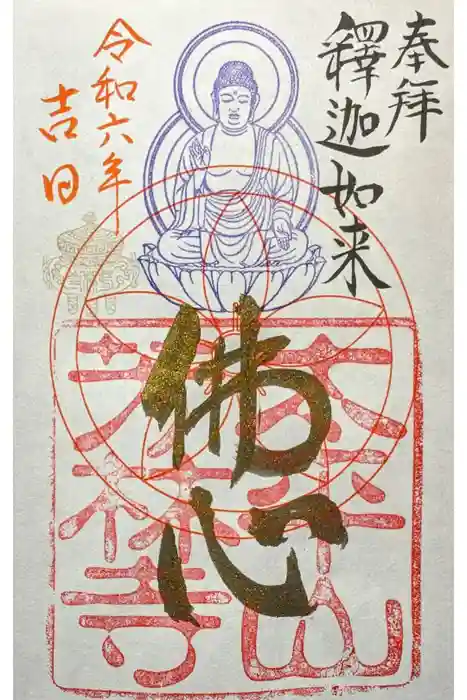 奉拝
釋迦如来
佛心
令和六年
吉日
山
林寺